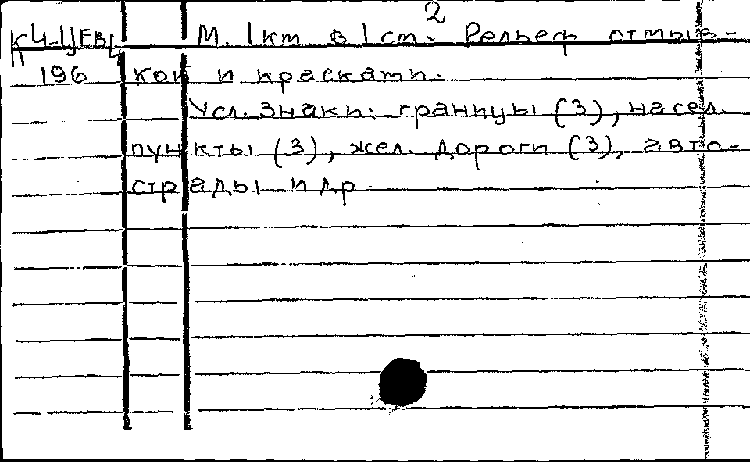 2
К4-ЦЕВЦ М. 1км в 1см. Рельеф отмыв-
196 кой и красками.
Усл. знаки: границы (3), насел.
пункты (3), жел. дороги (3), авто-
страды и др